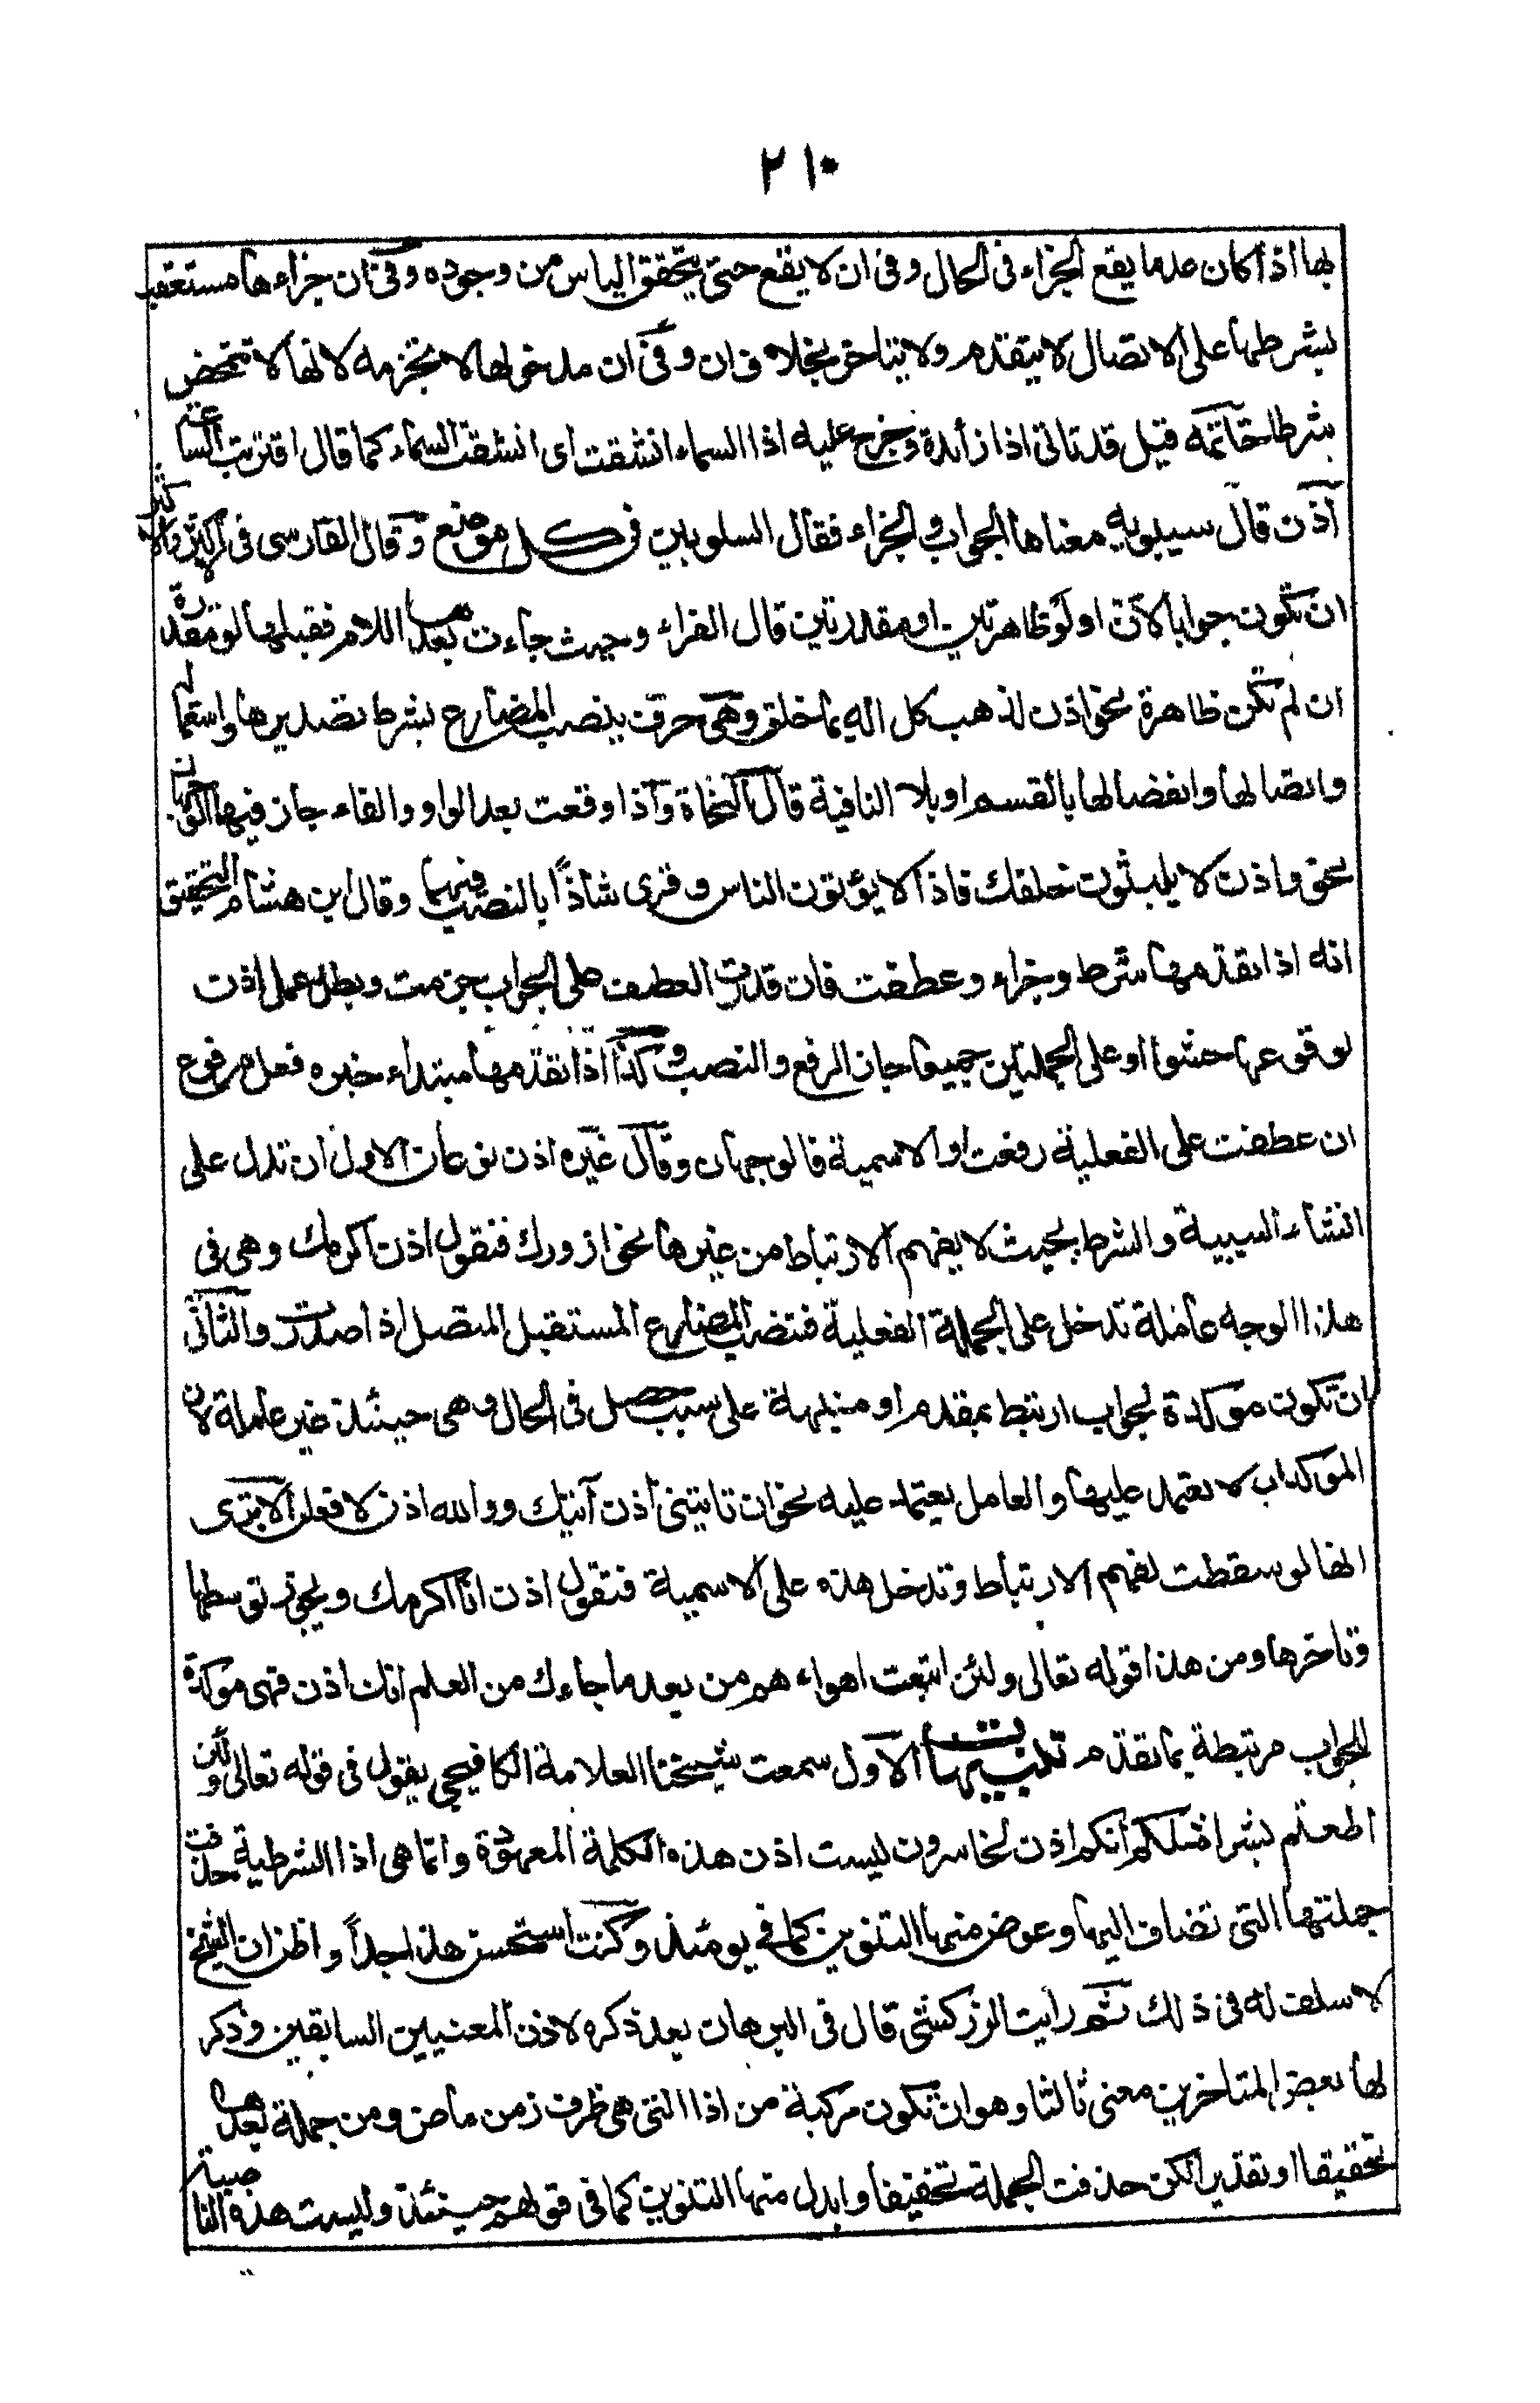 ٢١٠
لها اذا كان عدما يقع الجزاء فى الحال وفى ان لا يقع حتى يتحقق الياس من وجوده وفى ان جزاءها مستعقب
لشرطها على الاتصال لا يتقدم ولا يتاخر بخلاف ان وفى ان مدخولها لا تجزمه لانها لا تتمخض
شرطا خاتمه قيل قد تاتى اذا زائدة وخرج عليه اذا السماء انشقت اى انشقت السماء كما قال اقتربت الساعة
اذن قال سيبويه معناها الجواب والجزاء فقال السلوبين فى كل موضع وقال الفارسى فى الاكثر والاكثر
ان تكون جوابا لان او لو ظاهرتين او مقدرتين قال الفراء وحيث جاءت بعدها اللام فقبلها لو مقدرة
ان لم تكن ظاهرة نحو اذن لذهب كل اله بما خلق وهى حرف ينصب المضارع بشرط تصديرها واستقبالها
واتصالها وانفصالها بالقسم او بلا النافية قال النحاة واذا وقعت بعد الواو والفاء جاز فيها الوجهان
نحو واذن لا يلبثون خلفك فاذا لا يؤتون الناس وقرى شاذا بالنصب فيهما وقال ابن هشام التحقيق
انه اذا تقدمها شرط وجزاء وعطفت فان قدرت العطف على الجواب جزمت وبطل عمل اذن
لوقوعها حشوا او على الجملتين جميعا جاز الرفع والنصب وكذا اذا تقدمها مبتداء خبره فعل مرفوع
ان عطفت على الفعلية رفعت او الاسمية فالوجهان وقال غيره اذن نوعان الاول ان تدل على
انشاء السببية والشرط بحيث لا يفهم الارتباط من غيرها نحو ازورك فتقول اذن اكرمك وهى فى
هذا الوجه عاملة تدخل على الجملة الفعلية فتنصب المضارع المستقبل المتصل اذا صدرت والثانى
ان تكون موكدة لجواب ارتبط بمقدم او منبهة على سبب حصل فى الحال وهى حينئذ غير عاملة لان
الموكدات لا يعتمد عليها والعامل يعتمد عليه نحو ان تاتينى اذن آتيك ووالله اذن لافعلن الا ترى
انها لو سقطت لفهم الارتباط وتدخل هذه على الاسمية فتقول اذن انا اكرمك ويجوز توسطها
وتاخرها ومن هذا قوله تعالى ولئن اتبعت اهواءهم من بعد ما جاءك من العلم انك اذن فهى موكدة
للجواب مرتبطة بما تقدم تنبيهات الاول سمعت شيخنا العلامة الكافيجي يقول فى قوله تعالى ولئن
اطعتم بشرا مثلكم انكم اذن لخاسرون ليست اذن هذه الكلمة المعهودة وانما هى اذا الشرطية حذفت
جملتها التى تضاف اليها وعوض منها التنوين كما فى يومئذ وكنت استحسن هذا جدا واظن ان الشيخ
لا سلف له فى ذلك ثم رايت الزركشى قال فى البرهان بعد ذكره لاذن المعنيين السابقين وذكر
لها بعض المتاخرين معنى ثالثا وهو ان تكون مركبة من اذا التى هى ظرف زمن ماض ومن جملة بعدها
تحقيقا او تقديرا لكن حذفت الجملة تخفيفا وابدل منها التنوين كما فى قولهم حينئذ وليست هذه الناصبة